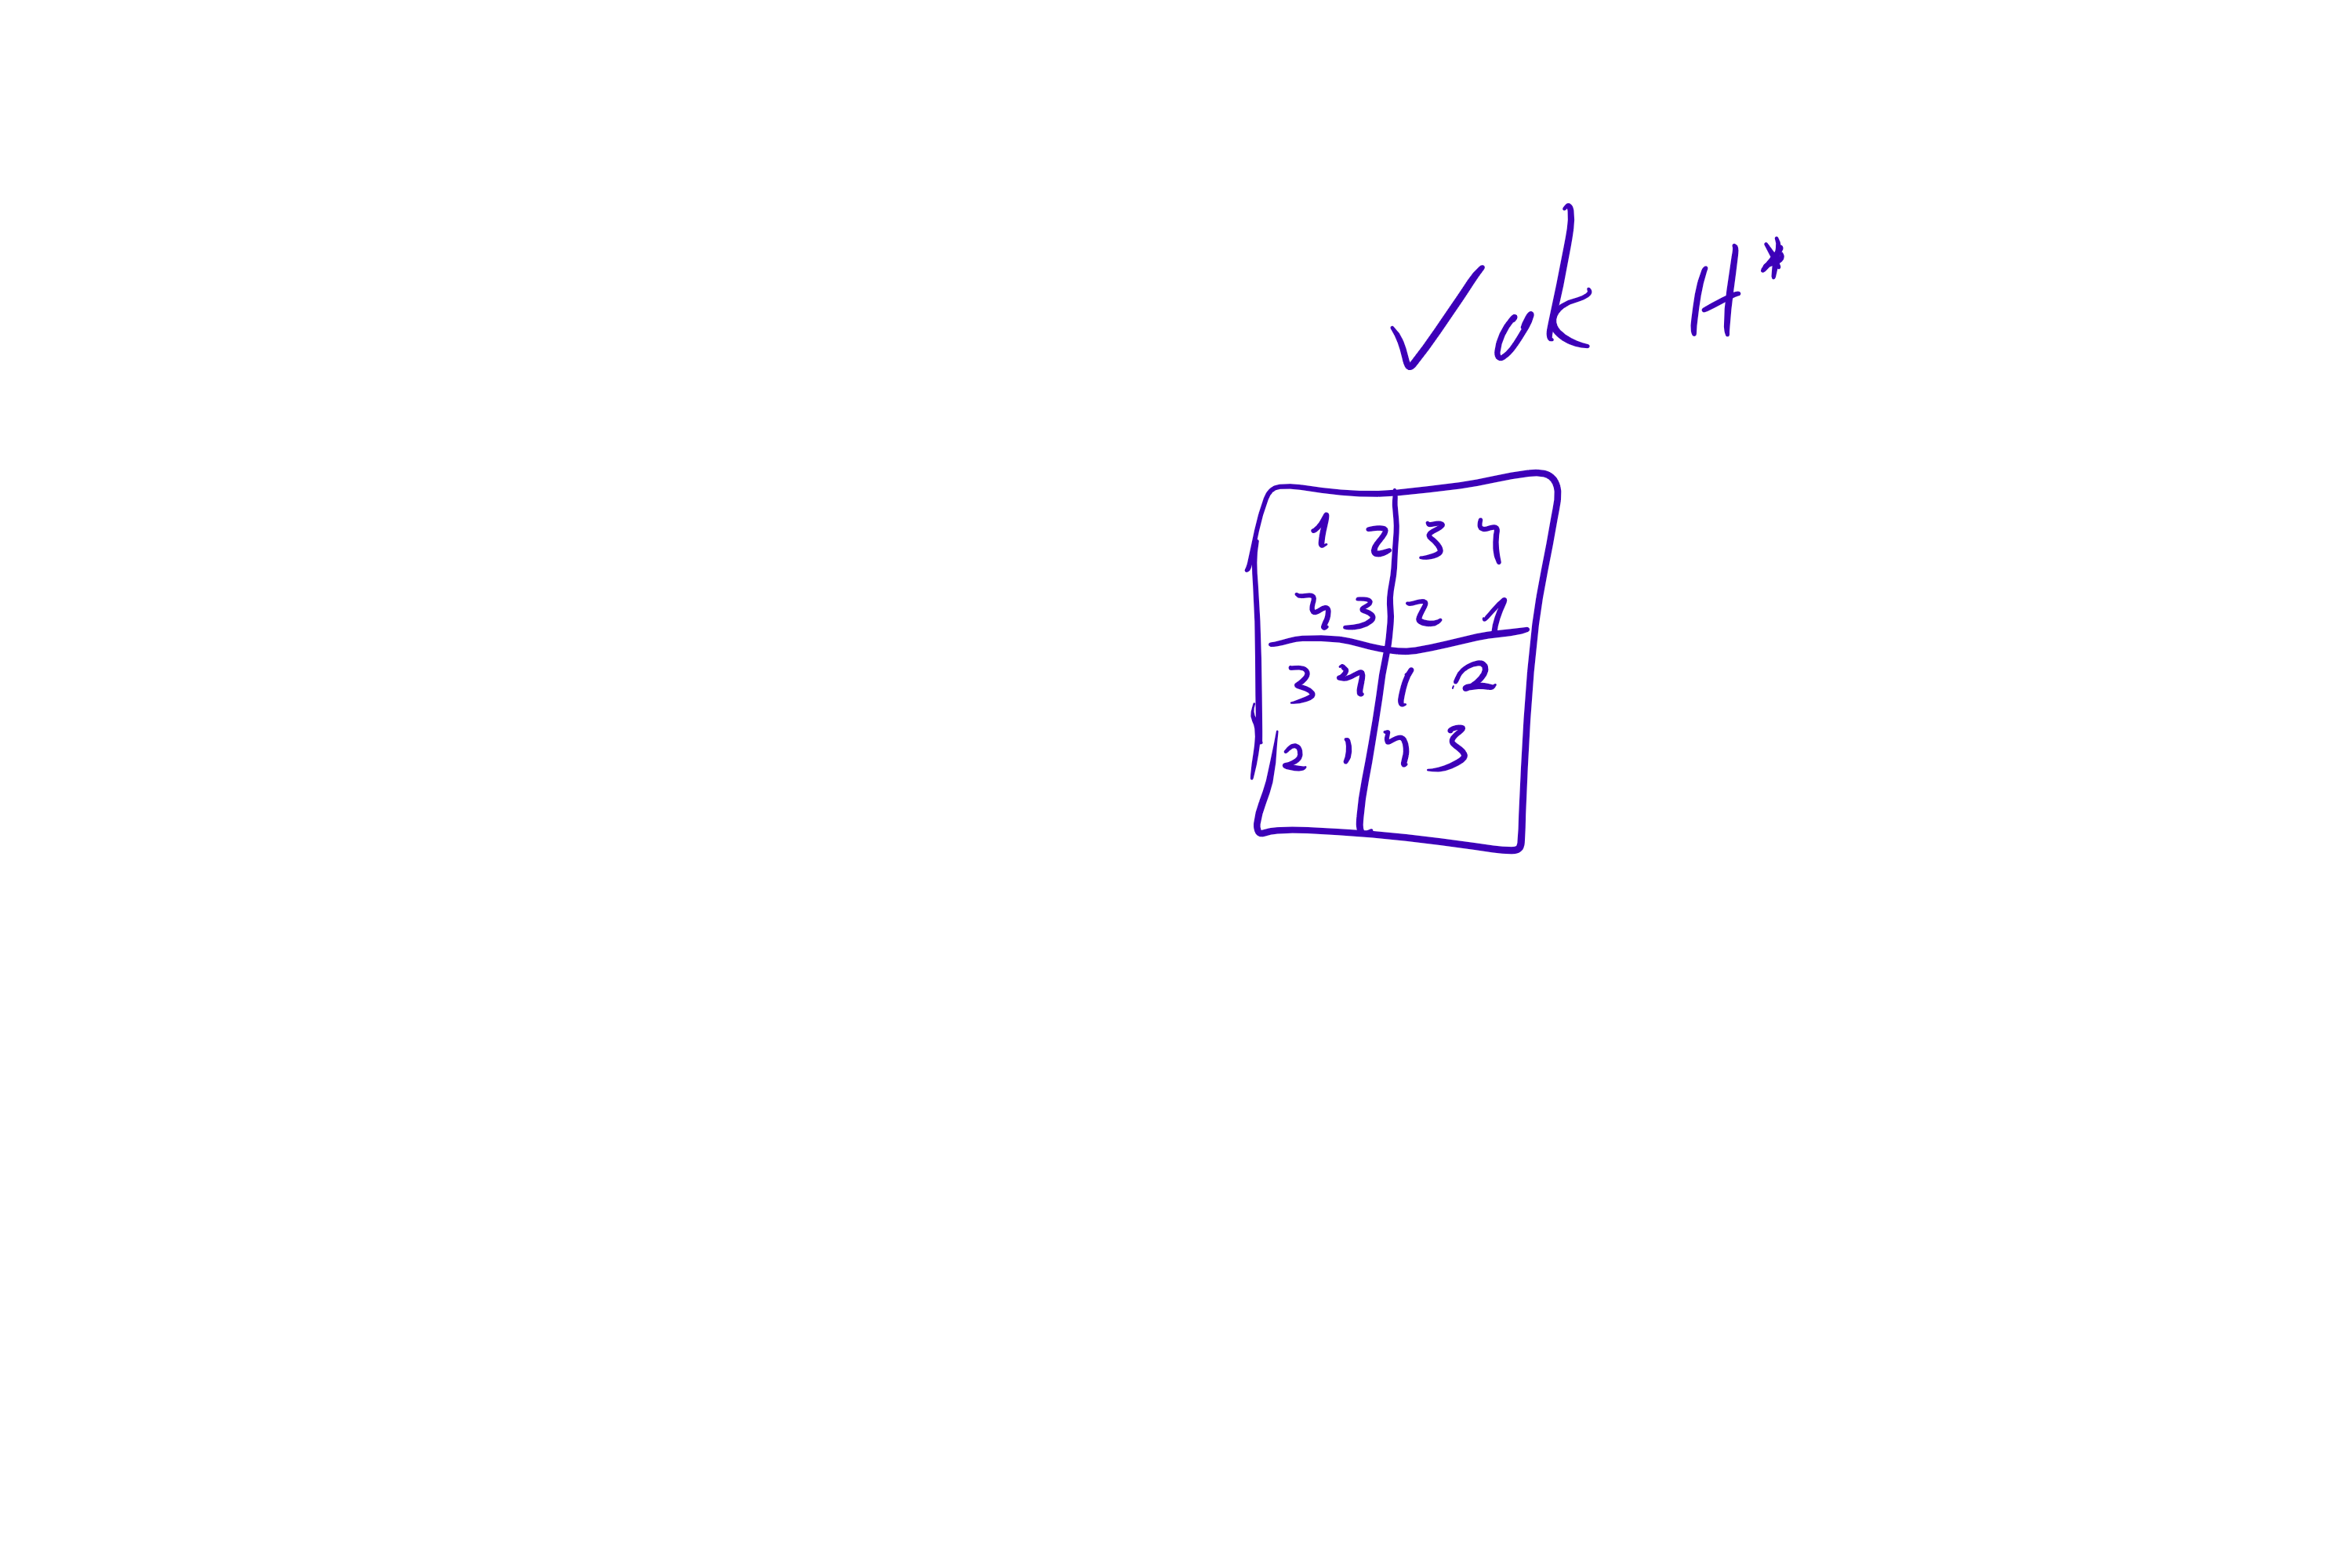 Vak H*
1 2 3 4
4 3 2 1
3 4 1 2
2 1 4 3